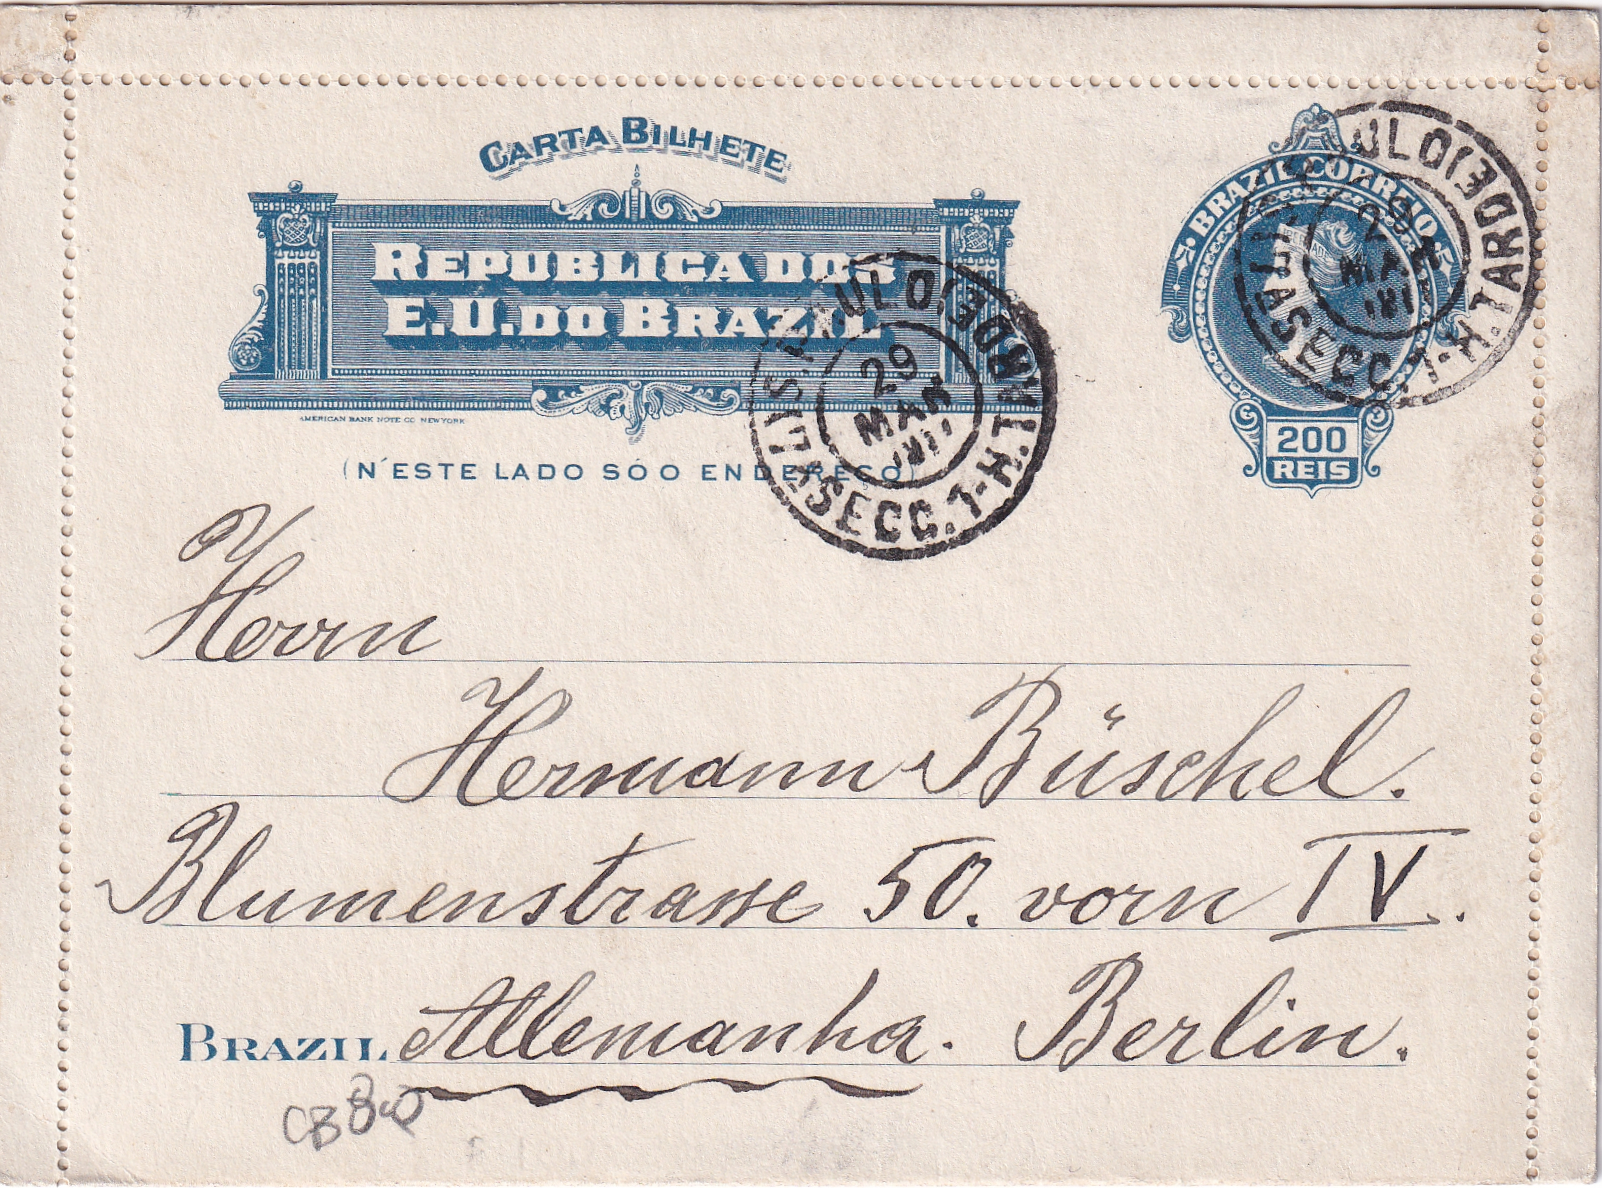 CARTA BILHETE
REPUBLICA DOS
E.U. DO BRAZIL
AMERICAN BANK NOTE CO NEW YORK
(N'ESTE LADO SÓ O ENDEREÇO)
BRAZIL CORREIO
200
REIS
S. PAULO (3ª D E TARDE)
29
MAR
1911
Herrn
Hermann Büschel.
Blumenstrasse 50. vorn IV.
BRAZIL Allemanha. Berlin.